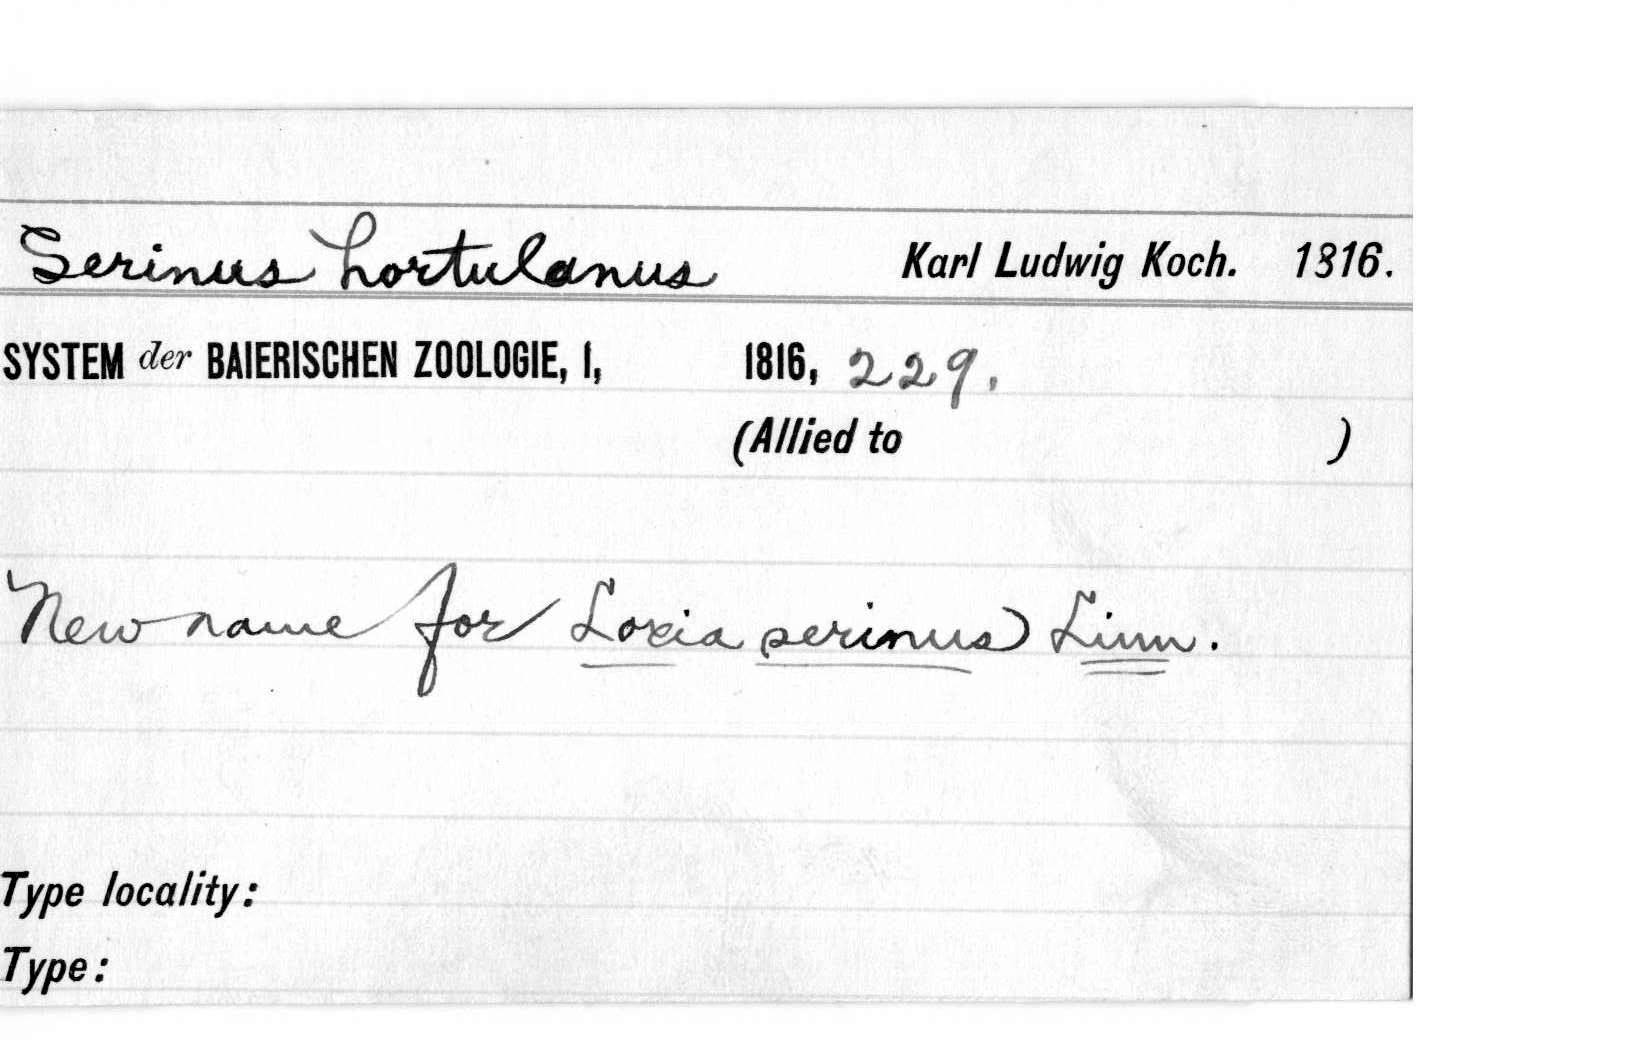 Serinus hortulanus Karl Ludwig Koch. 1816.
SYSTEM der BAIERISCHEN ZOOLOGIE, I, 1816, 229.
(Allied to )
New name for Loxia serinus Linn.
Type locality:
Type: